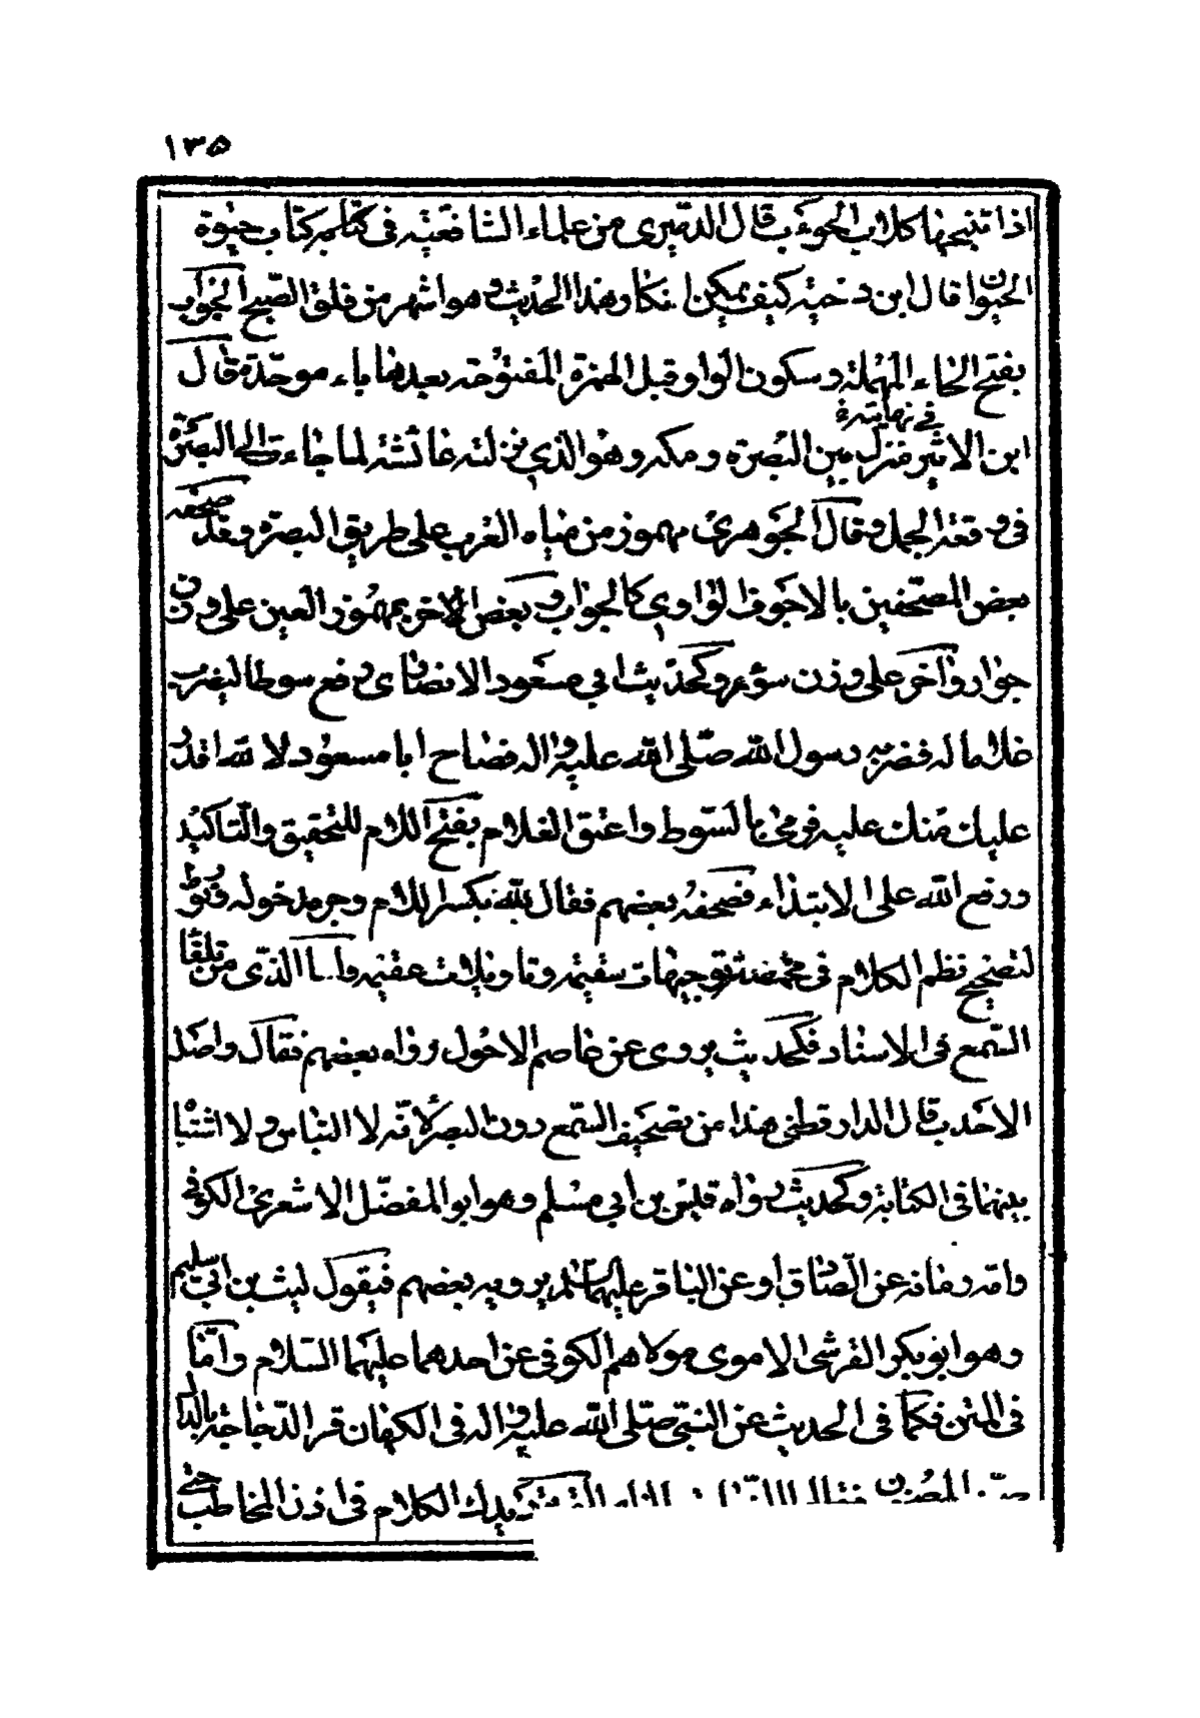 ١٣٥
اذا تنبحها كلاب الحوءب قال الدميرى من علماء الشافعيه فى كتابه كتاب حيوة
الحيوان قال ابن دحيه كيف يمكن انكار هذا الحديث وهو اشهر من فلق الصبح الحوءب
بفتح الحاء المهملة وسكون الواو قبل الهمزة المفتوحه بعدها باء موحدة قال
ابن الاثير فى نهايته منزل بين البصره ومكه وهو الذى نزلته عائشة لما جاءت الى البصرة
فى وقعة الجمل وقال الجوهرى مهموز من مياه العرب على طريق البصرة وقد صحفه
بعض المصحفين بالاجوف الواوى كالجواب وبعض الاخر بمهموز العين على وزن
جوار واخر على وزن سؤر وكحديث ابي مسعود الانصارى رفع سوطا ليضرب
غلاما له فضربه رسول الله صلى الله عليه واله فصاح ابا مسعود لالله اقدر
عليك منك عليه فرمى بالسوط واعتق الغلام بفتح اللام للتحقيق والتاكيد
ورفع الله على الابتداء فصحفه بعضهم فقال لله بكسر اللام وجر مدخوله
لتصحيح نظم الكلام فى توجيهات سقيمه وتاويلات عقيمه واما الذى من تلقا
السمع فى الاسناد فكحديث يروى عن عاصم الاحول رواه بعضهم فقال واصل
الاحدب قال الدارقطنى هذا من تصحيف السمع دون البصر لانه لا التباس ولا اشتبا
بينهما فى الكتابة وكحديث رواه قيس بن ابي مسلم وهو ابو المفضل الاشعرى الكوفى
وامه رمانه عن الصادق او عن الباقر عليهما السلم يرويه بعضهم فيقول ليث بن ابى سليم
وهو ابو بكر القرشى الاموى مولاهم الكوفى عن احدهما عليهما السلام واما
فى المتن فكما فى الحديث عن النبى صلى الله عليه واله فى الكهان قر الدجاجة بالدا
الكلام فى اذن المخاطب حتى